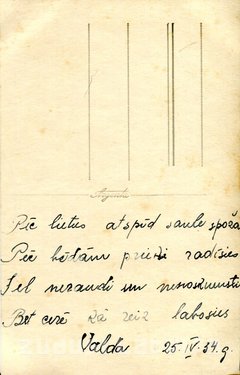 Pēc lietus atspīd saule spoža
Pēc bēdām prieki radīsies
Tel neraudi un nenoskumsti
Bet cerē kā reiz labosies
Valda 25. IV. 34. g.